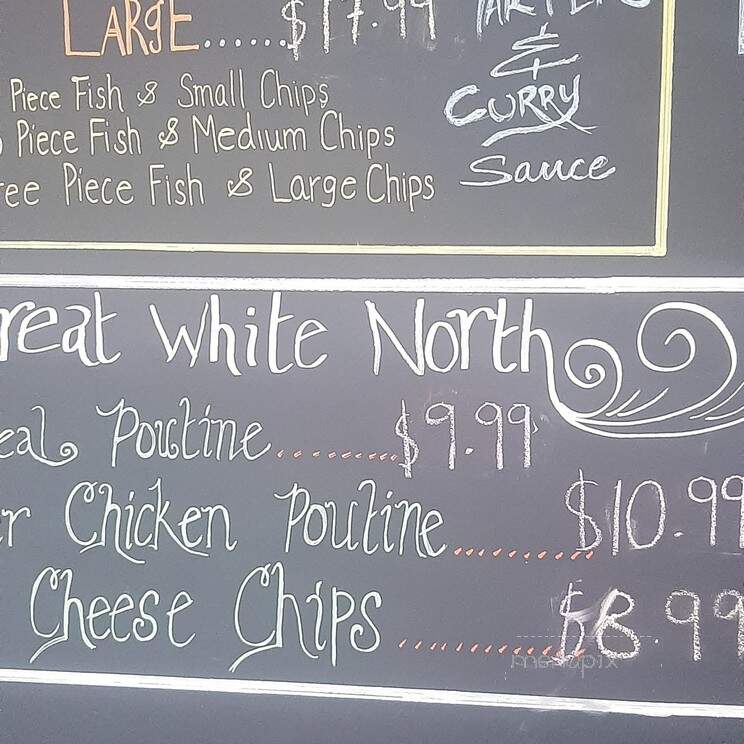 LARGE......$17.99
&
CURRY
Sauce
Piece Fish & Small Chips
Piece Fish & Medium Chips
Piece Fish & Large Chips
White North
Poutine.........$9.99
Chicken Poutine..........$10.99
Cheese Chips............$8.99
menupix